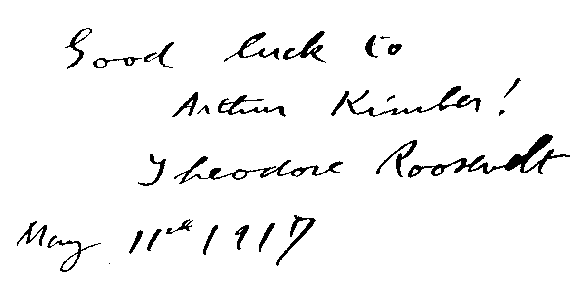 Good luck to
Arthur Kimber!
Theodore Roosevelt
May 11th 1917